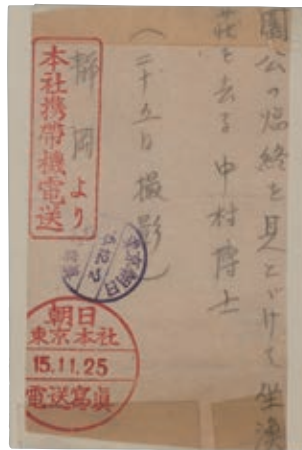 園公の臨終を見とゞけて坐漁
荘を去る中村博士
(二十五日撮影)
静岡より
本社携帯機電送
東京朝日
朝日
東京本社
15.11.25
電送寫眞